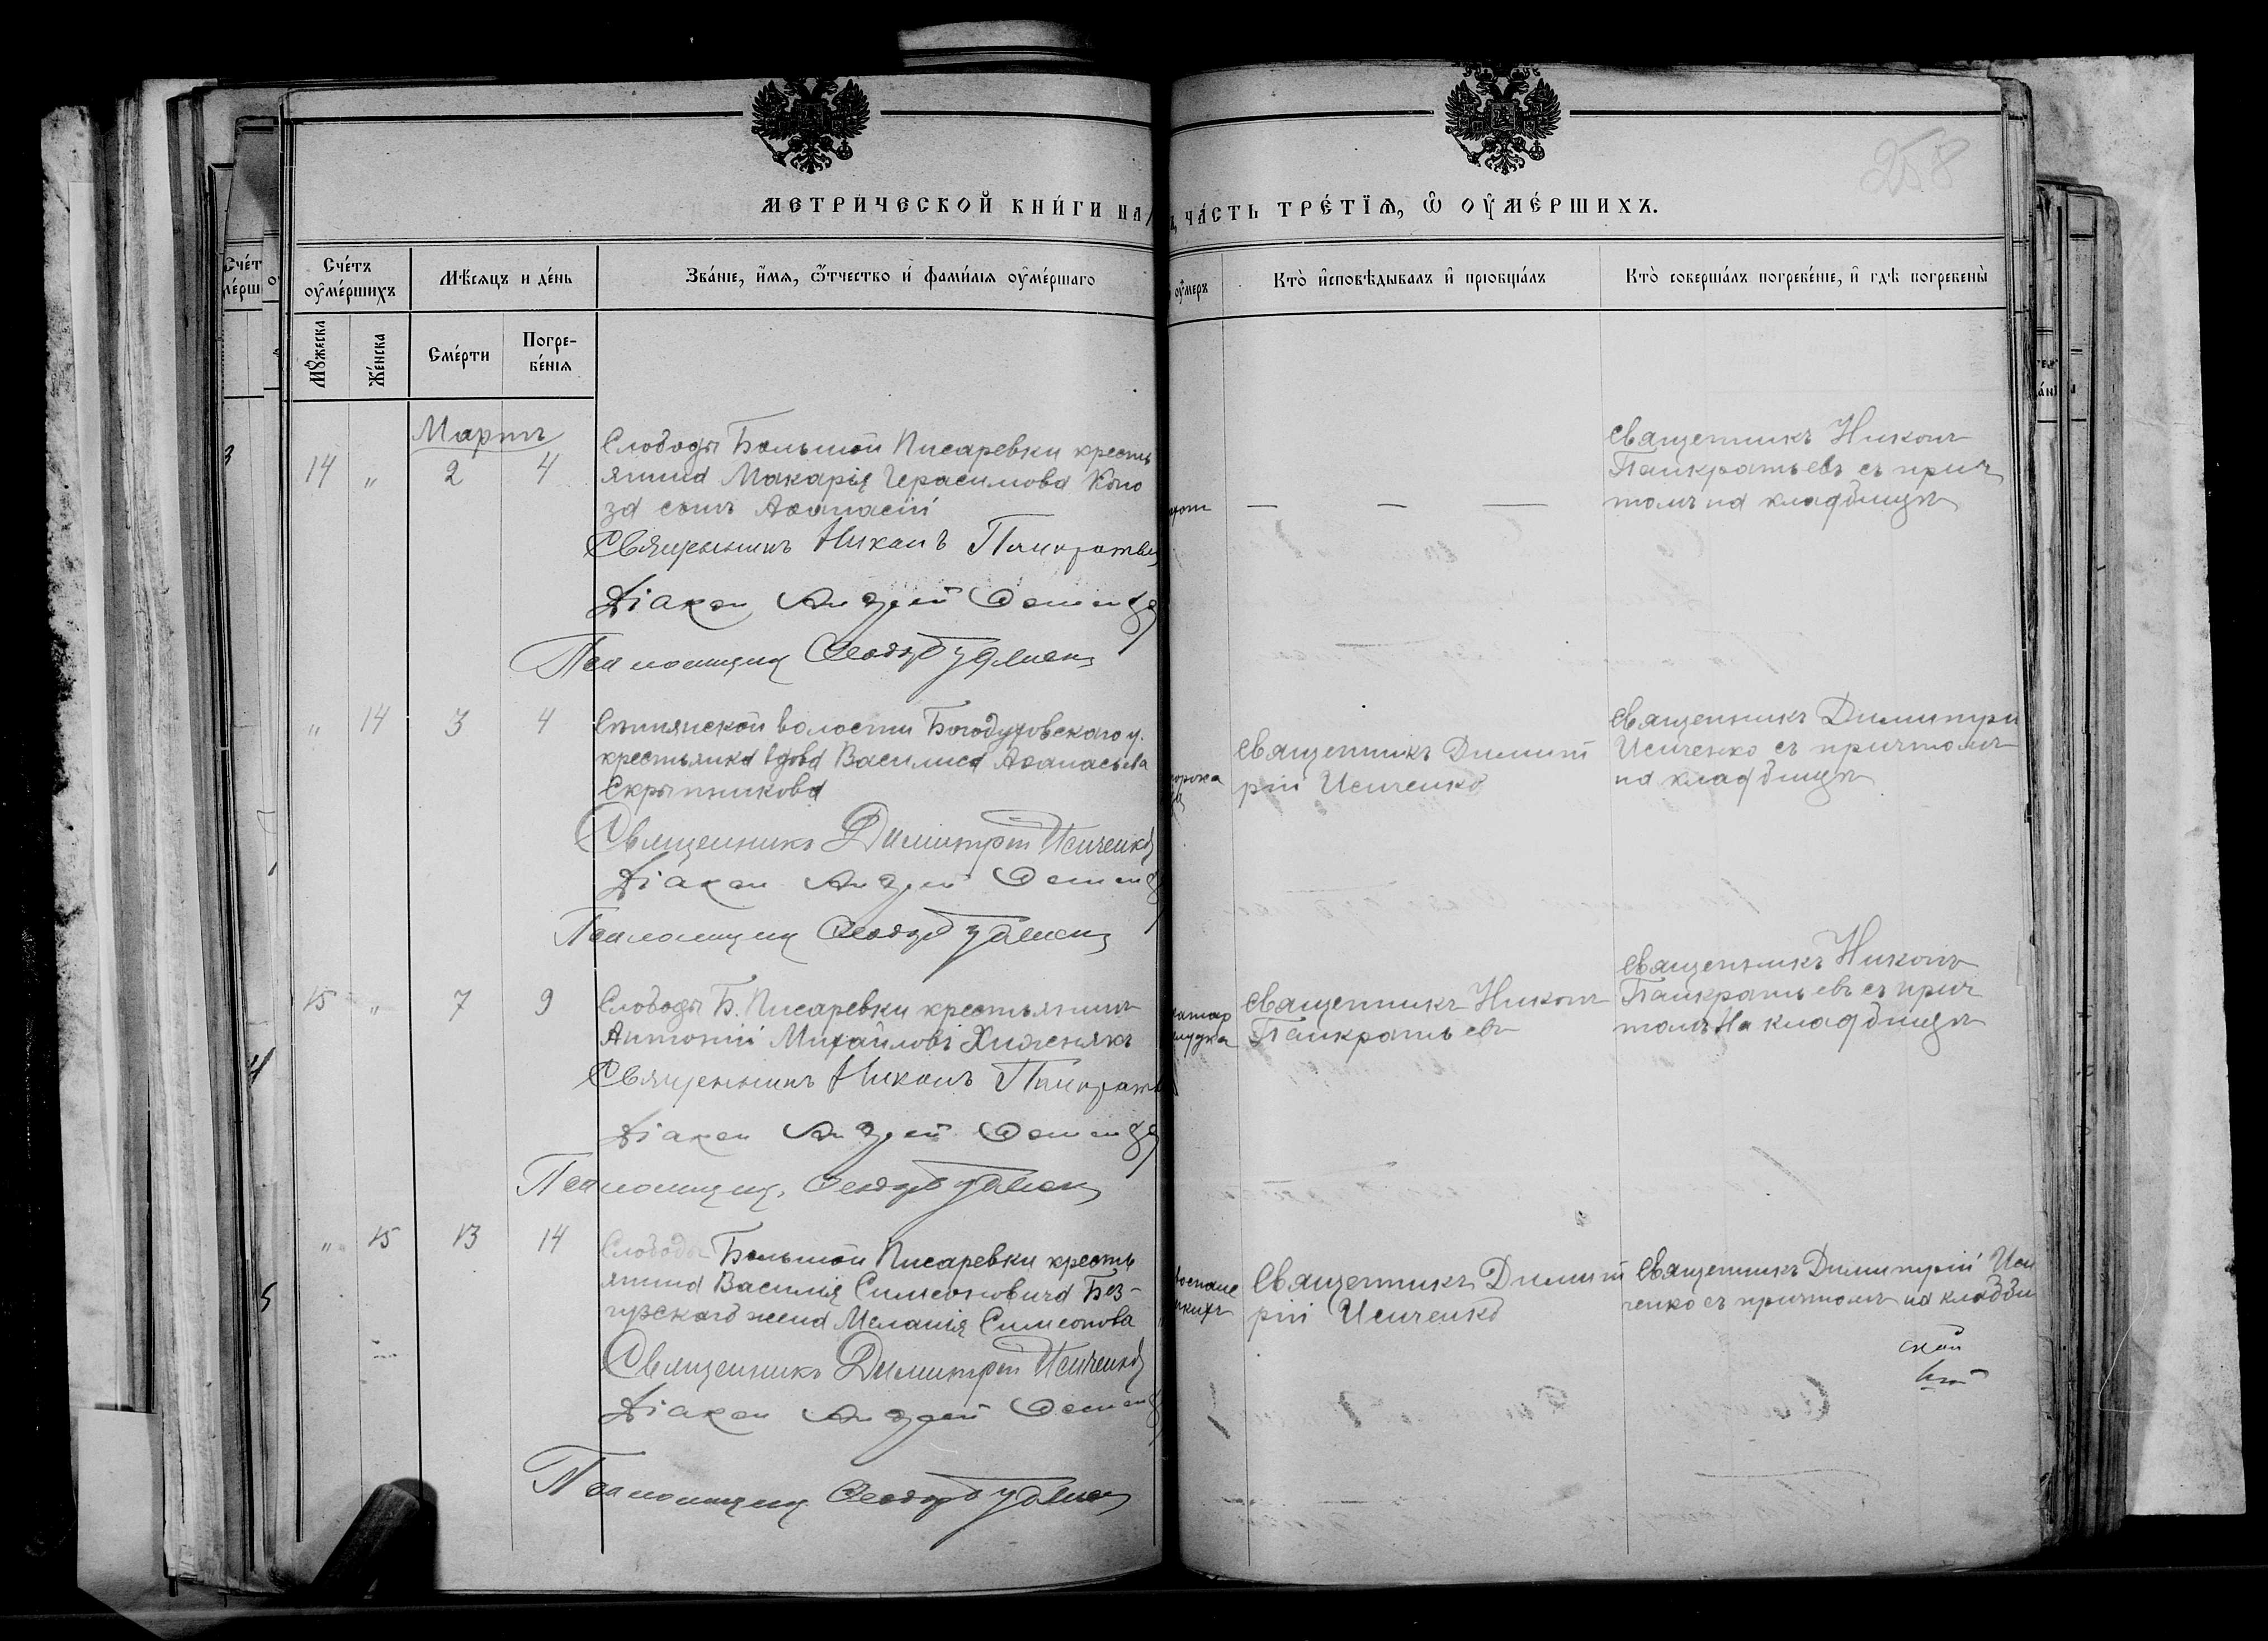 258
МЕТРИЧЕСКОЙ КНИ́ГИ НА
ЧА́СТЬ ТРЕ́ТЇѦ, Ѽ ОУ҆МЕ́РШИХЪ.
Сче́тъ
оу҆ме́ршихъ
Мѣ́сѧцъ и де́нь
Зва́нїе, и҆́мѧ, ѻ҆́тчество и҆ фами́лїѧ оу҆ме́ршаго
оу҆́меръ
Кто̀ и҆сповѣ́дывалъ и҆ прїѡбща́лъ
Кто̀ соверша́лъ погребе́нїе, и҆ гдѣ̀ погребены̀
Мꙋ́жеска
Же́нска
Сме́рти
Погре-
бе́нїѧ
Мартъ
14 " 2 4
Слободы Большой Писаревки кресть
янина Макарія Герасимова
за сынъ Аѳанасій
Священникъ Никонъ Панкратьевъ
Діакон Андрей
Псаломщик Ѳеодор
— — —
священникъ Никонъ
Панкратьевъ съ прич
томъ на кладбищѣ
" 14 3 4
волости Богодуховскаго у.
крестьянка вдова Василиса Аѳанасьева
Скрыпникова
Священникъ Димитрій Исиченко
Діакон Андрей
Псаломщик Ѳеодор
священникъ Димит
рій Исиченко
священникъ Димитрій
Исиченко съ причтомъ
на кладбищѣ
15 " 7 9
Слободы Б. Писаревки крестьянинъ
Антоній Михайловъ Хижнякъ
Священникъ Никонъ Панкратьевъ
Діакон Андрей
Псаломщик Ѳеодор
священникъ Никонъ
Панкратьевъ
священникъ Никонъ
Панкратьевъ съ прич
томъ на кладбищѣ
" 15 13 14
Слободы Большой Писаревки кресть
янина Василія Симеоновича Без-
жена Меланія Симеонова
Священникъ Димитрій Исиченко
Діакон Андрей
Псаломщик Ѳеодор
Священникъ Димит
рій Исиченко
священникъ Димитрій Иси
ченко съ причтомъ на кладби